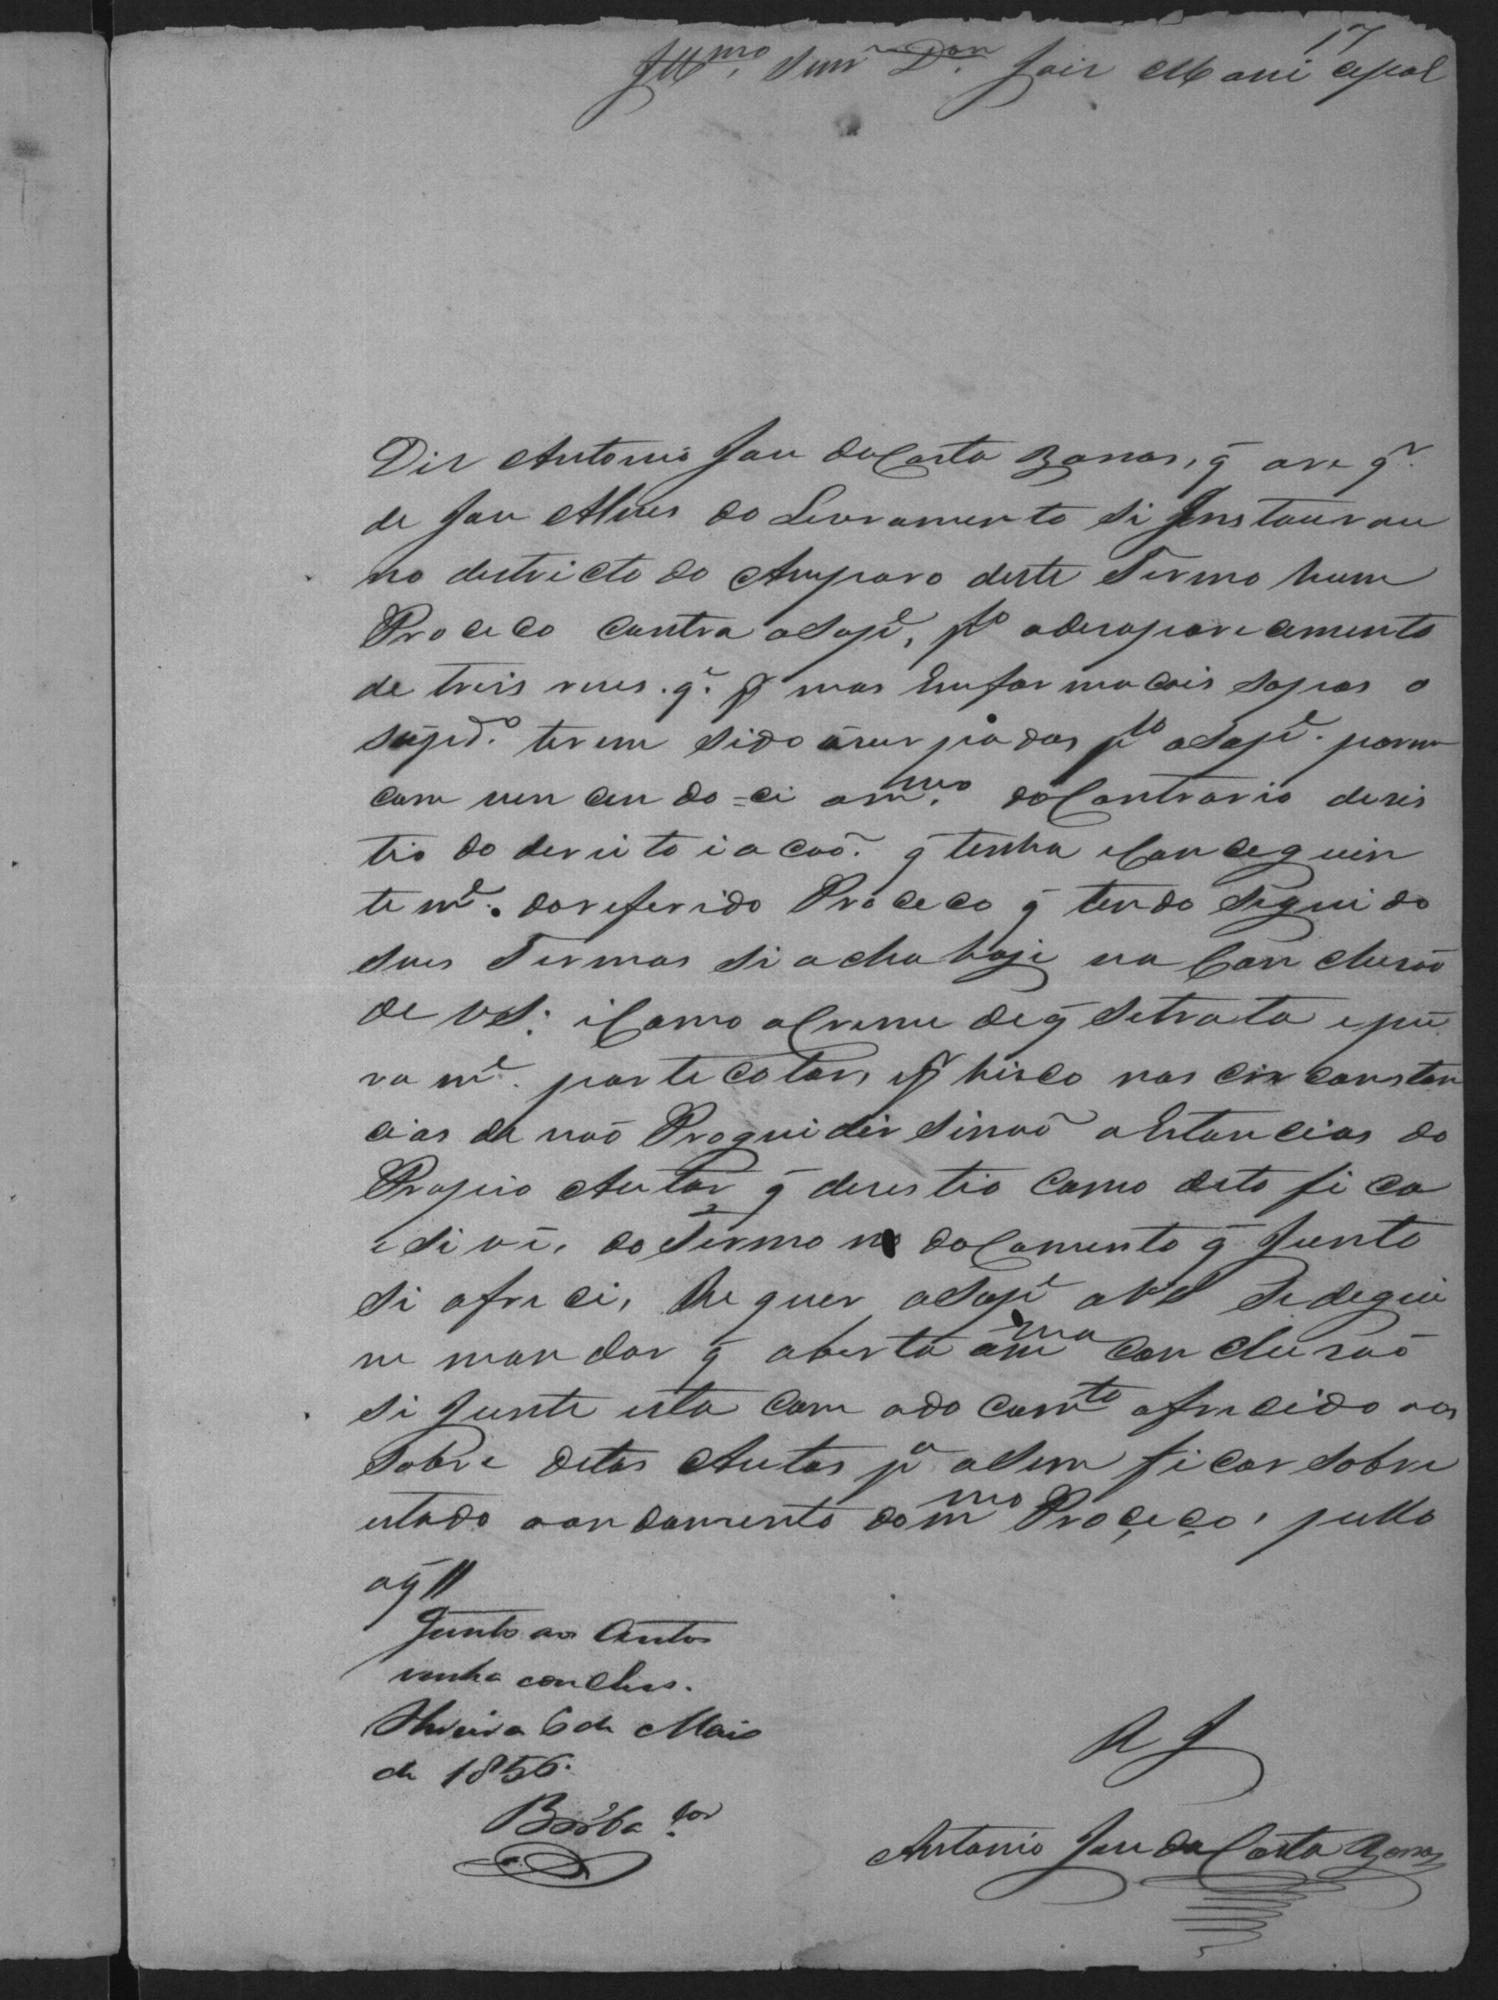 17
Illmo. Senr. Dor. Juiz Muni cipal
Diz Antonio Joze da Costa q̃ a re qr.
de Joze Alves do Livramento si Instaurou
no destricto do Amparo deste Termo hum
Proceco contra o Supe, plo o desaparecimento
de treis reses. q̃. p̃ mas Emformacois sopos o
supdo. terem sido usurpadas plo o Supe. porem
com ven cen do=ci o mmo. do Contrario dezis
tio do dereito i acaõ. q̃ tenha i Conceguin
te me. do referido Proceco q̃ tendo siguido
seus Termos si acha hoje na Con cluzaõ
de VS: i Como o Creme de q̃ se trata e pu
ra me. particolar, e p̃ hisco nas circonstan
cias de naõ Proguider sinaõ a Estancias do
Propio Autor q̃ dezestio como dito fi ca
i si vê, do Termo no doCumento q̃ Junto
si ofreci, Re quer o Supe a VS Se degui
ne mandar q̃ aberta a mma Con cluzaõ
si Junte esta com o do cumto ofrecido aos
Sobre ditos Autos pa asim ficar sobre
estado o andamento do mmo Proçeço, pello
o q̃ //
Junto aos Autos
venha conclus.
6 de Maio
de 1856.
R J
Antonio Joze da Costa